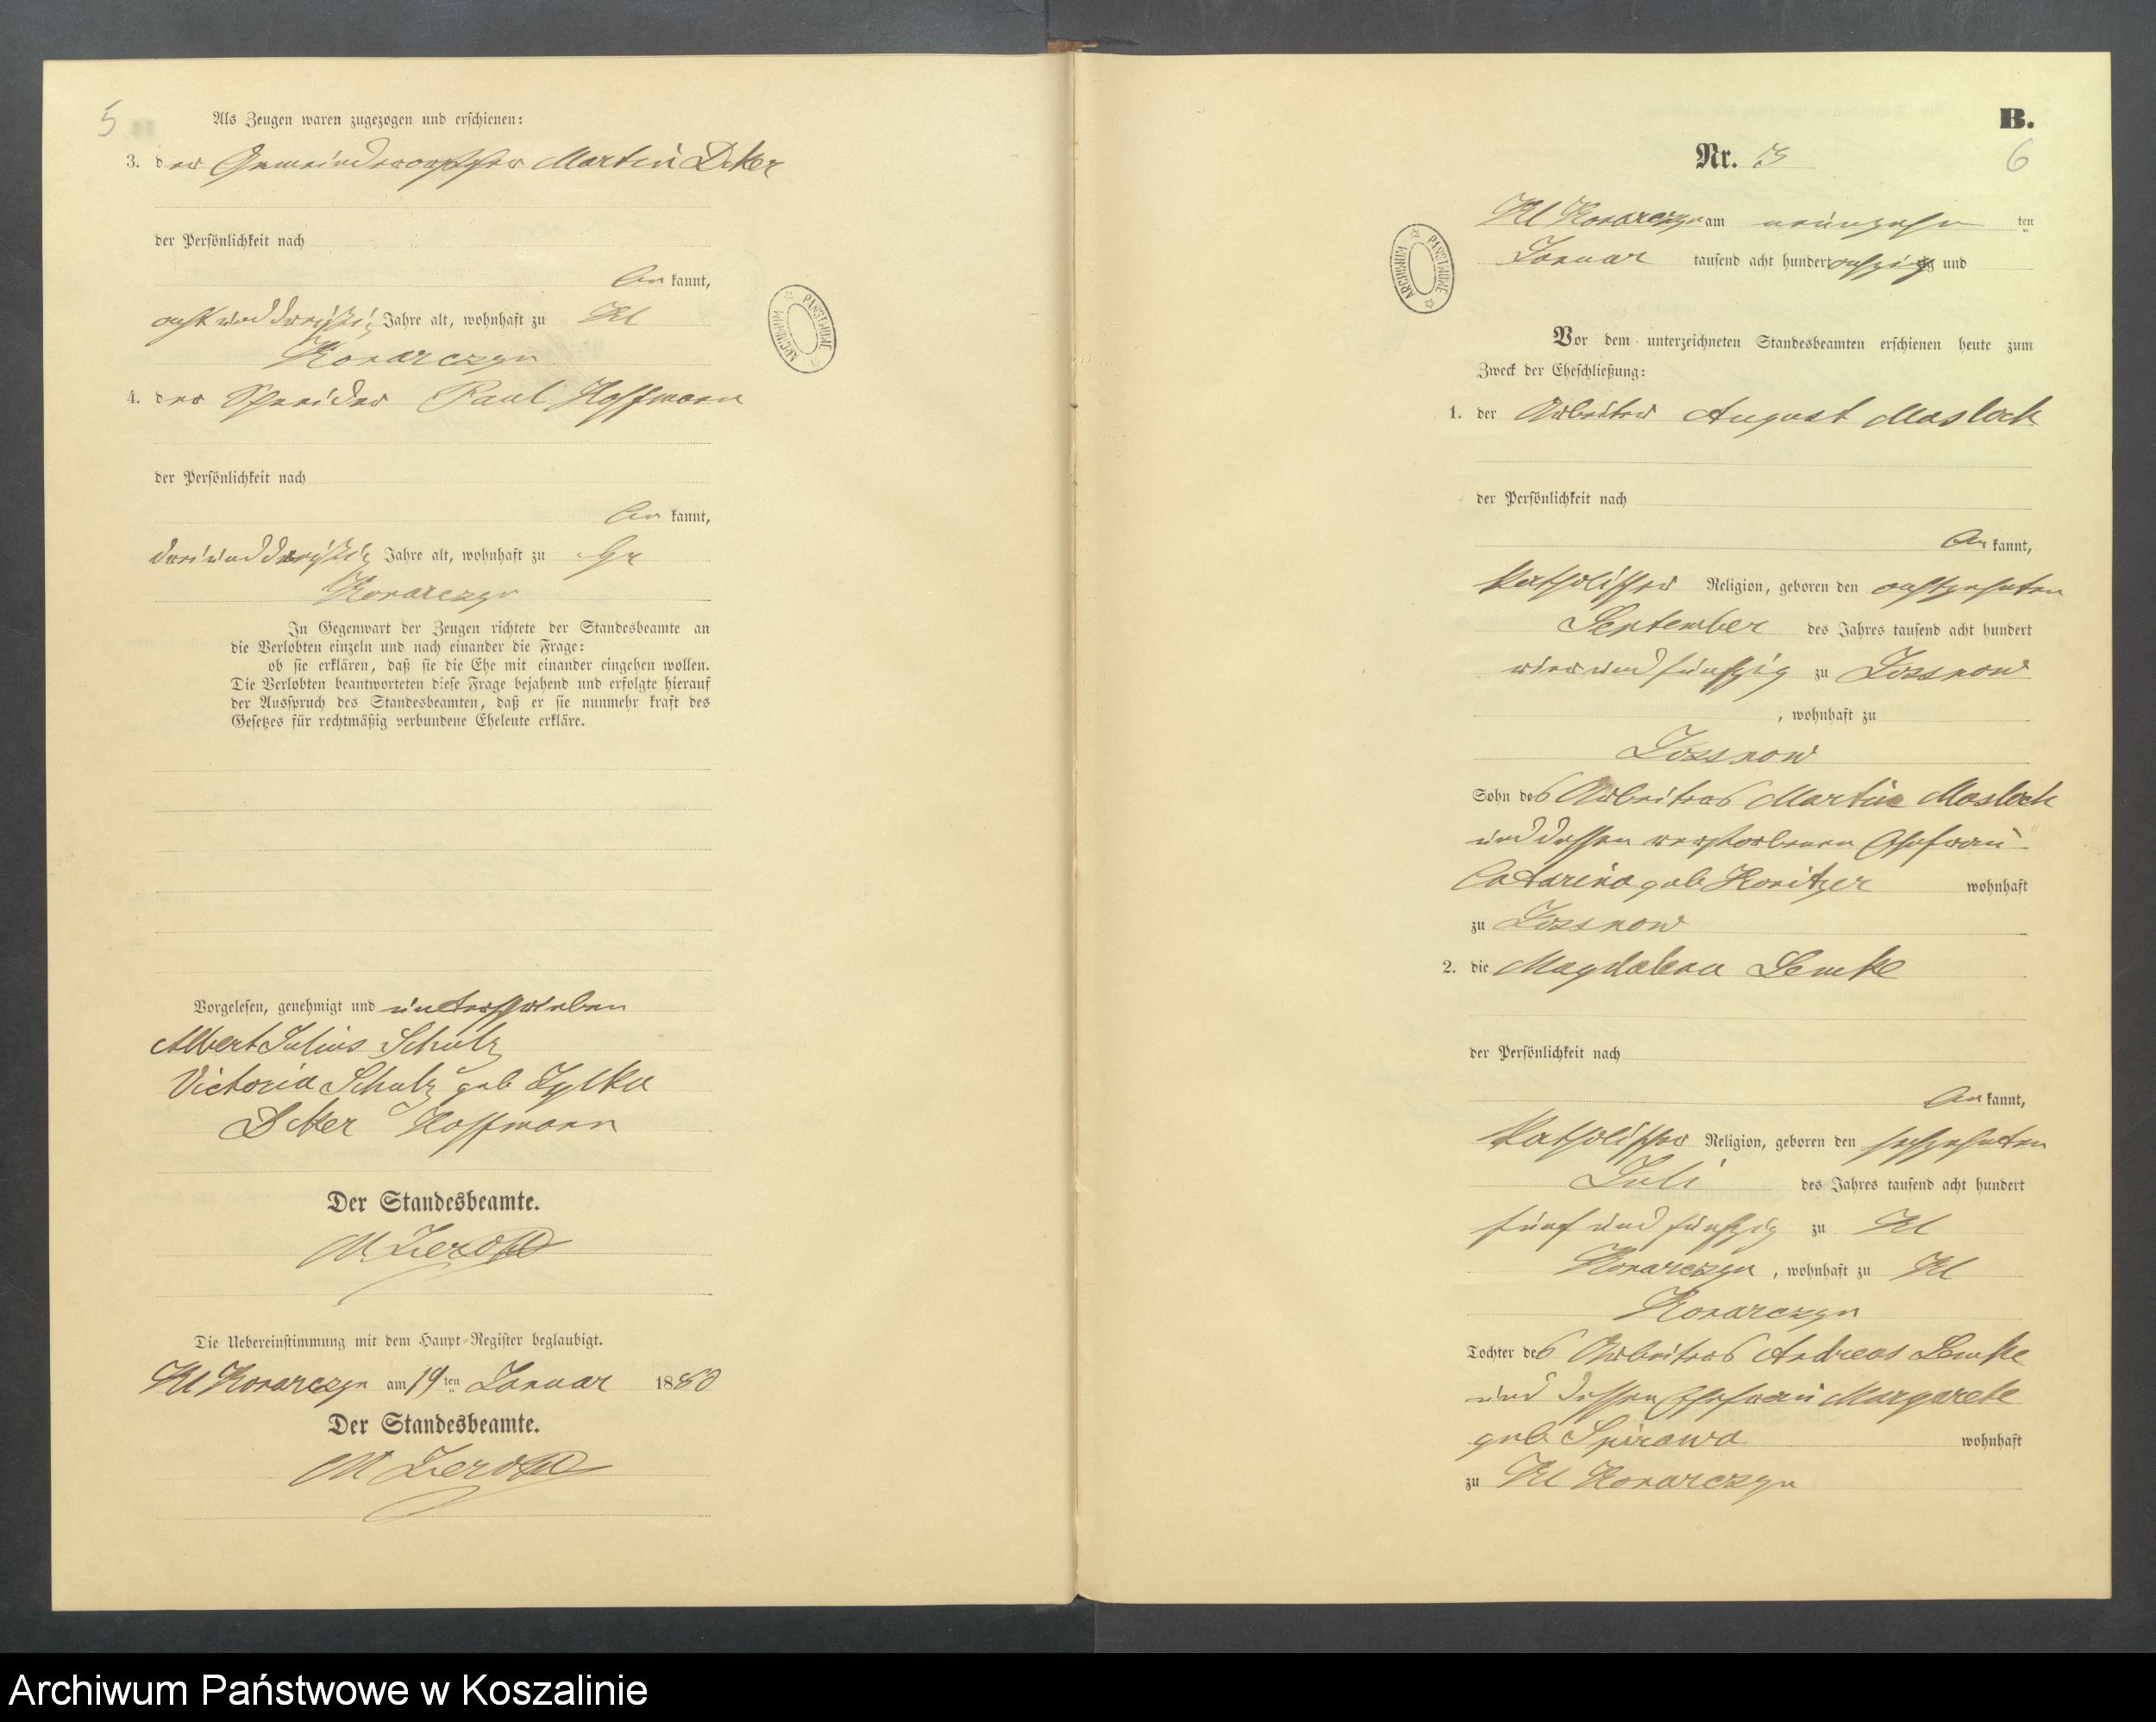 5
Als Zeugen waren zugezogen und erschienen:
3. der Gemeindevorsteher Martin Deker
der Persönlichkeit nach
be kannt,
acht und dreißig Jahre alt, wohnhaft zu Kl
Konarczyn
4. der Paul Hoffmann
der Persönlichkeit nach
be kannt,
drei und dreißig Jahre alt, wohnhaft zu Gr
Konarczyn
In Gegenwart der Zeugen richtete der Standesbeamte an
die Verlobten einzeln und nach einander die Frage:
ob sie erklären, daß sie die Ehe mit einander eingehen wollen.
Die Verlobten beantworteten diese Frage bejahend und erfolgte hierauf
der Ausspruch des Standesbeamten, daß er sie nunmehr kraft des
Gesetzes für rechtmäßig verbundene Eheleute erkläre.
Vorgelesen, genehmigt und unterschrieben
Albert Julius Schulz
Victoria Schulz geb Zylka
Deker Hoffmann
Der Standesbeamte.
Die Uebereinstimmung mit dem Haupt-Register beglaubigt.
Kl Konarczyn am 19ten Januar 1880
Der Standesbeamte.
B.
6
Nr. 3
Kl Konarczyn am neunzehn ten
Januar tausend acht hundert achtzig und
Vor dem unterzeichneten Standesbeamten erschienen heute zum
Zweck der Eheschließung:
1. der Arbeiter August Masloch
der Persönlichkeit nach
be kannt,
katholischer Religion, geboren den achtzehnten
September des Jahres tausend acht hundert
vier und fünfzig zu Zossnow
, wohnhaft zu
Zossnow
Sohn des Arbeiters Martin Masloch
und dessen verstorbenen Ehefrau
Catarina geb Konitzer wohnhaft
zu Zossnow
2. die Magdalena Lemke
der Persönlichkeit nach
be kannt,
katholischer Religion, geboren den sechzehnten
Juli des Jahres tausend acht hundert
fünf und fünfzig zu Kl
Konarczyn, wohnhaft zu Kl
Konarczyn
Tochter des Arbeiters Andreas Lemke
und dessen Ehefrau Margarete
geb Spirawa wohnhaft
zu Kl Konarczyn
ARCHIWUM PAŃSTWOWE
ARCHIWUM PAŃSTWOWE
Archiwum Państwowe w Koszalinie